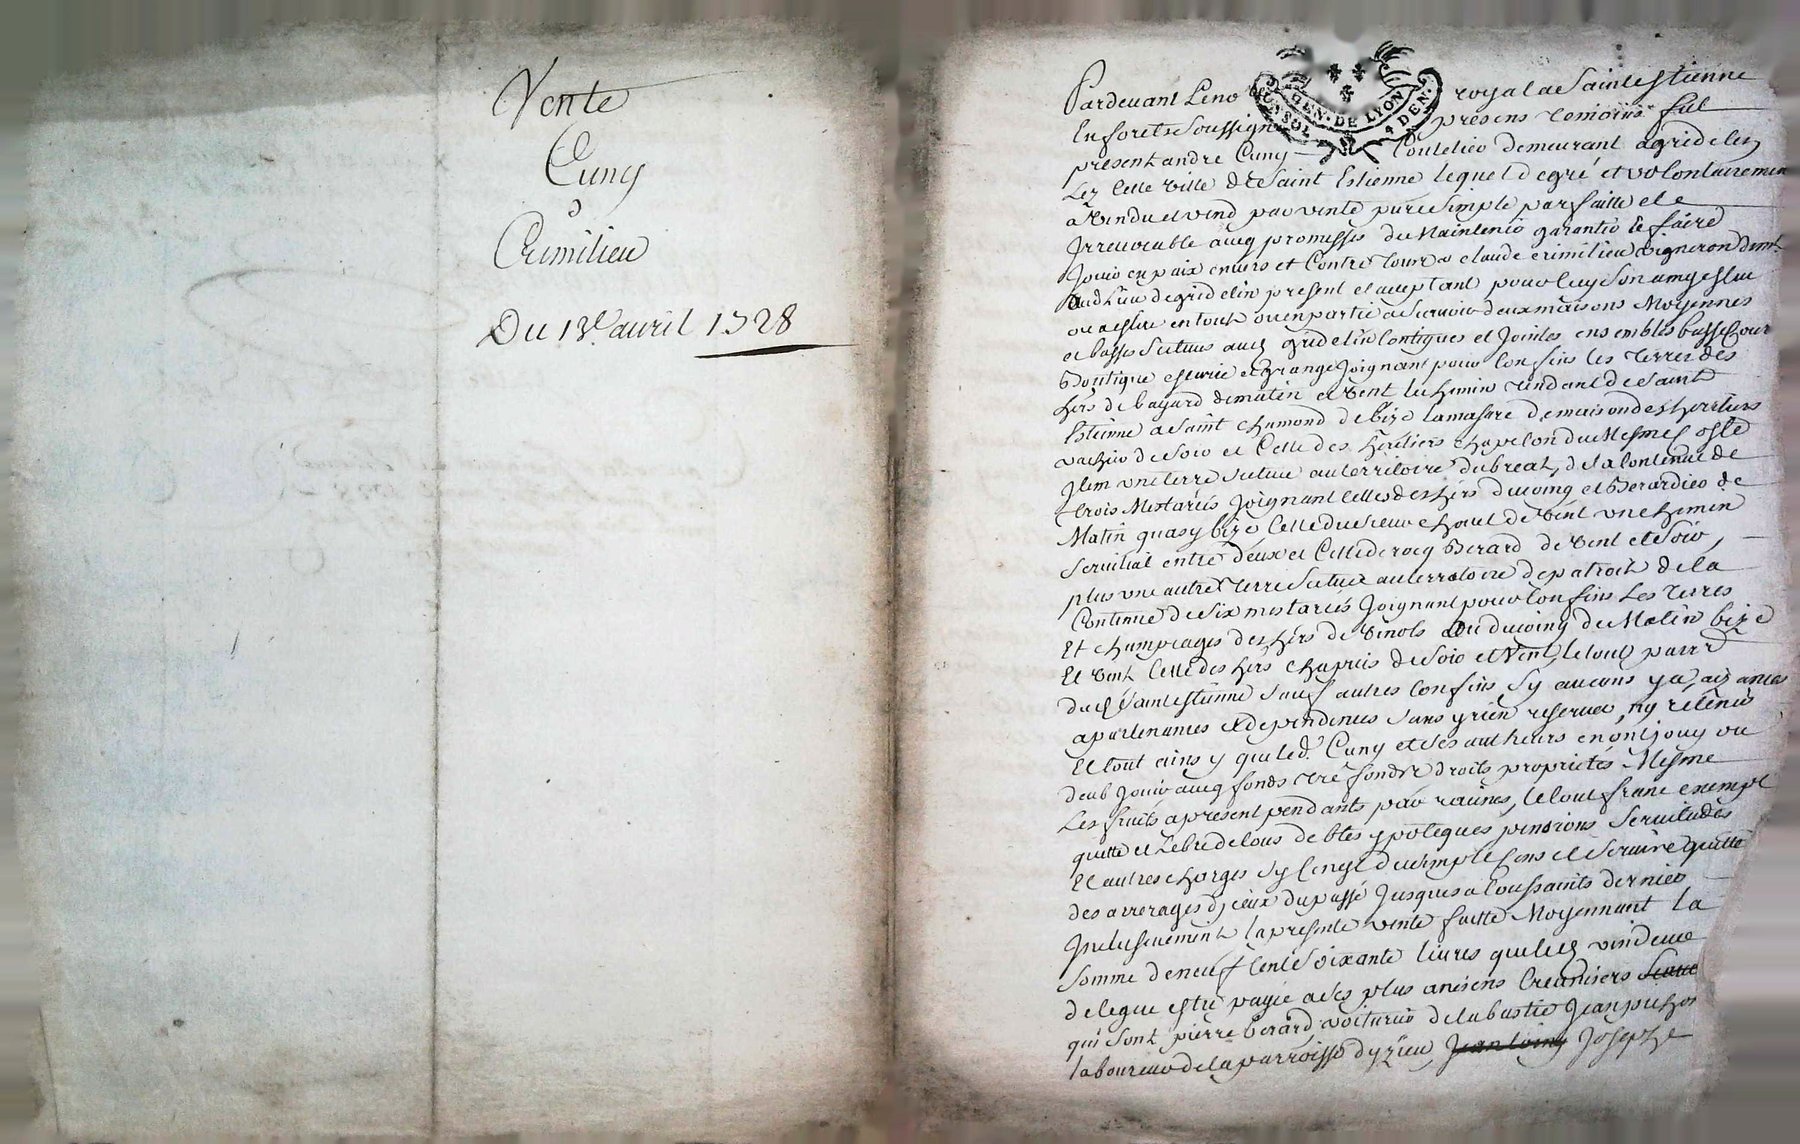 Vente
Cuny
a
Crimilieu
Du 13e. avril 1728
GEN. DE LYON
SOL 4 DEN.
Pardevant Leno royal a Saint Estienne
En forets Soussign présens temoins fut
présent andre Cuny Coutelier demeurant a gridelin
Lez Cette ville de Saint Estienne lequel de gré et volontairement
a vendu et vend par vente pure simple parfaitte et
Jrrevocable avecq promesses de Maintenir garantir et faire
Jouir en paix envers et Contre tous a claude crimilieu vigneron demt
aud Lieu de gridelin présent et acceptant pour luy son amy eslu
ou a eslire en tout ou en partie a scavoir deux maisons Moyennes
et basses Scitues aud gridelin Contigues et Jointes ensembles basse Cour
Boutique escurie et grange Joignant pour Confins les terres des
hers de bayard de matin et vent le chemin tendant de Saint
Estienne a Saint chamond de bize la masure de maison des heritiers
vachier de soir et Celle des heritiers chapelon du Mesmes osté
Jtem une terre Scitue au territoire du breat, de la Contenue de
trois Mestariés Joignant Celles des hers ducoing et Berardier de
Matin quasy bize Celle du sieur de vent un chemin
Servitial entre deux et Celle de rocq Berard de vent et soir,
plus une autre terre Scitue au terratoire de patroit de la
Contenue de six mestariés Joignant pour Confins Les terres
Et champeages des hers de vinols ou ducoing de Matin bize
Et vent Celle des hers chapuis de soir et Vent, le tout parr
dud Saint Estienne Sauf autres Confins Sy aucuns y a, aizances
apartenances et dependences sans y rien reserver, ny retenir
Et tout ainsy que led. Cuny et ses autheurs en ont jouy ou
deub Jouir avecq fonds tré fonds droits proprietés Mesme
Les fruits a present pendants par racines, le tout franc exempt
quitte et Lebre de tous debtes ypoteques pensions Servitudes
Et autres charges Sy Ce nest du simple Cens et Servire quitte
des arrerages d'jceux du passé Jusques a toussaints dernier
Jnclusivement la presente vente faitte Moyennant La
Somme de neuf Cents soixante livres que led vendeur
delegue estre payée a ses plus anciens Creanciers
qui Sont pierre Berard voiturier de la bastie Jean
laboureur de la parroisse dyzieu, Josephe